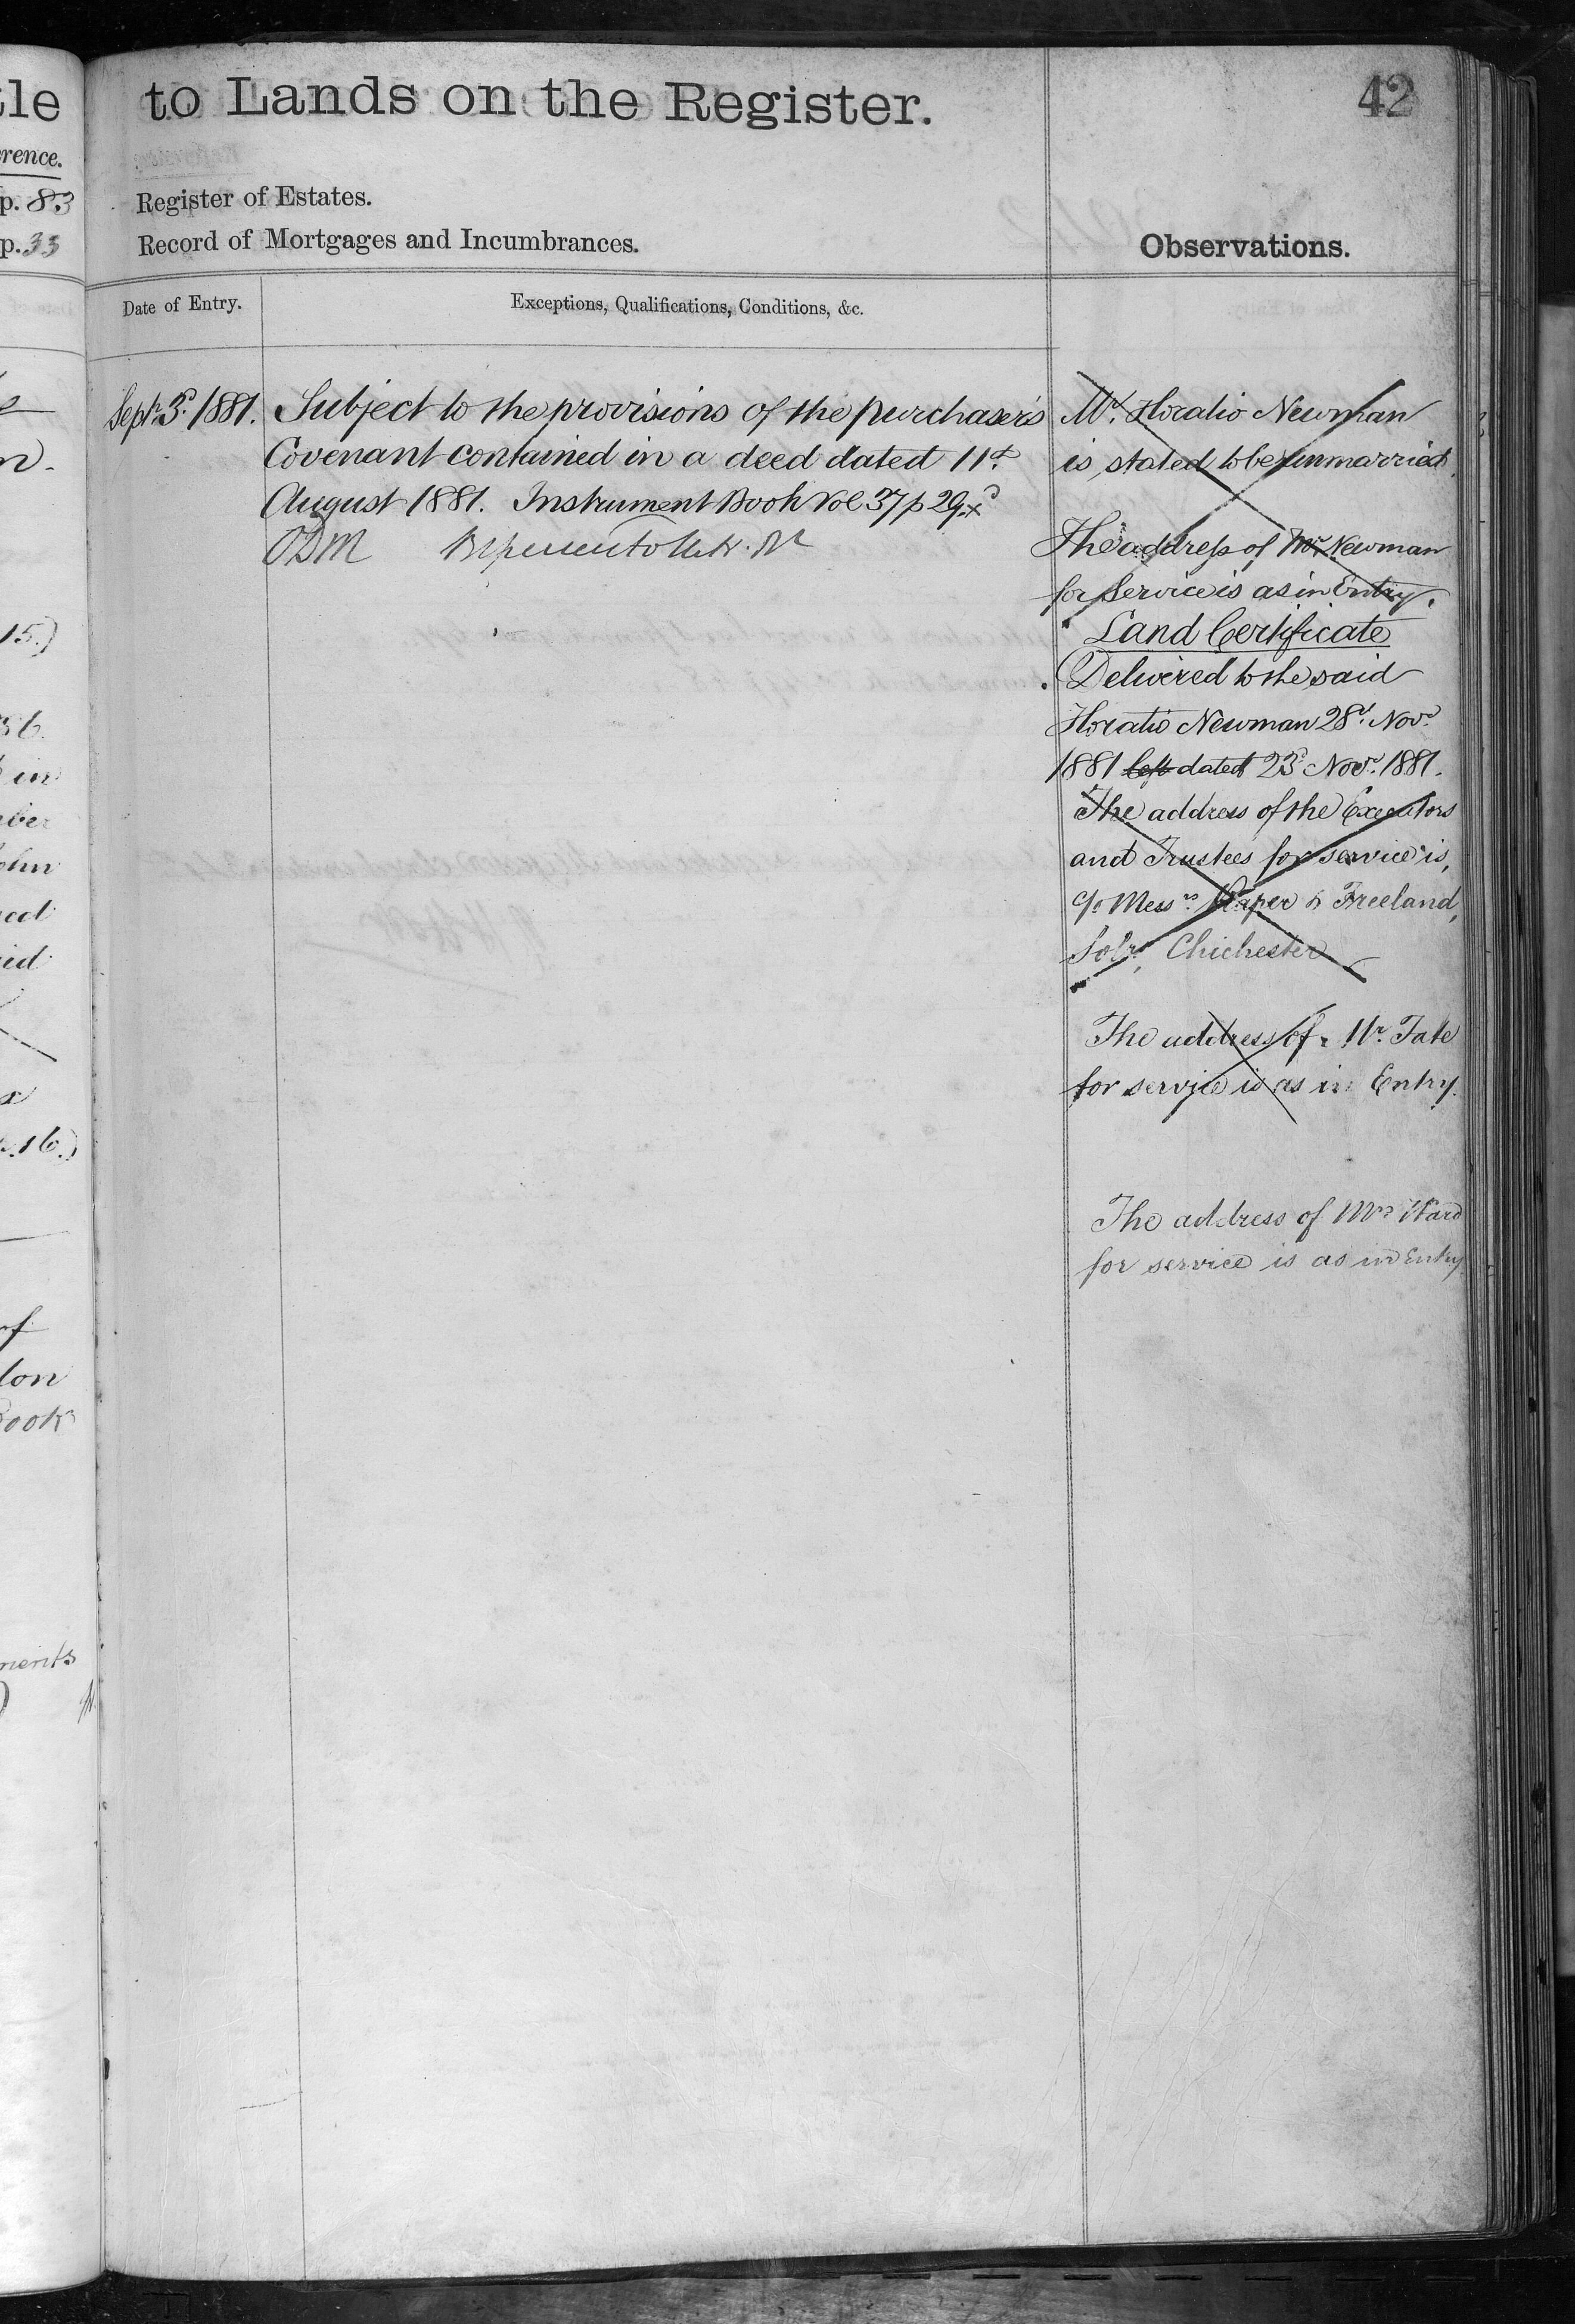 tle
to Lands on the Register.
42
rence.
p. 83
Register of Estates.
p. 33
Record of Mortgages and Incumbrances.
Observations.
Date of Entry.
Exceptions, Qualifications, Conditions, &c.
Septr. 3d. 1881.
Subject to the provisions of the purchaser's
Covenant contained in a deed dated 11th.
August 1881. Instrument Book Vol 37 p 29
Mr. Horatio Newman
is stated to be unmarried
The address of Mr Newman
for service is as in Entry.
Land Certificate
Delivered to the said
Horatio Newman 28th. Novr.
1881 left dated 23d Novr. 1881.
The address of the Executors
and Trustees for service is,
c/o Messrs Raper & Freeland,
Solrs, Chichester
The address of Mr. Tate
for service is as in Entry.
The address of Mrs Ward
for service is as in Entry.
15.)
36.
in
ber
ohn
16.)
of
don
Book
ments